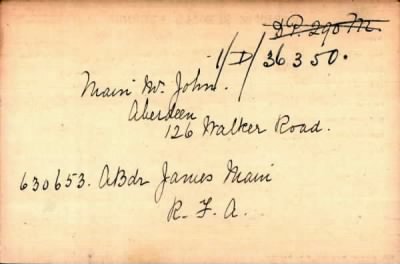 D.P. 290 M.
1/D/36350.
Main Mr. John.
Aberdeen
126 Walker Road.
630653. ABdr James Main
R. F. A.